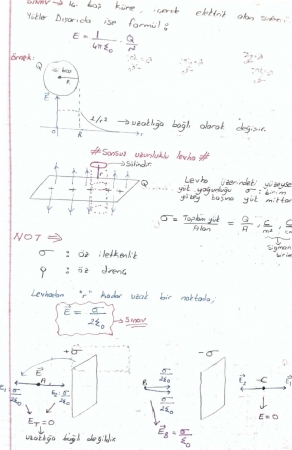 SINAV → İçi boş küre, içerdi elektrik alan sıfırdır.
Yükler Dışarıda ise formül:
E = 1/4πε₀ · Q/r²
Örnek:
Q
içi boş
R
E
1/r² → uzaklığa bağlı olarak değişir.
R
r
# Sonsuz uzunluklu levha #
Silindir
Q
Levha üzerindeki yüzeysel
yük yoğunluğu σ: birim
yüzey başına yük miktarı
σ = Toplam yük/Alan = Q/A, C/m², C/cm²
Sigmanın birimi
NOT ⇒
σ : öz iletkenlik
ρ : öz direnç
Levhadan "r" kadar uzak bir noktada;
E = σ/2ε₀ → Sınav
+σ
-σ
E
A
E₁ = σ/2ε₀
E₂ = σ/2ε₀
E_T = 0
uzaklığa bağlı değildir
B
σ/2ε₀
σ/2ε₀
E_B = σ/ε₀
E₂
C
E₁
E = 0